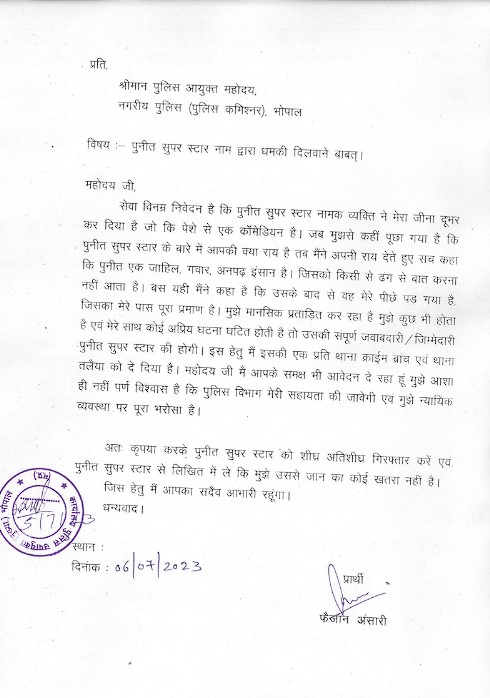 प्रति,
श्रीमान पुलिस आयुक्त महोदय,
नगरीय पुलिस (पुलिस कमिश्नर), भोपाल
विषय :– पुनीत सुपर स्टार नाम द्वारा धमकी दिलवाने बाबत्।
महोदय जी,
सेवा विनम्र निवेदन है कि पुनीत सुपर स्टार नामक व्यक्ति ने मेरा जीना दूभर
कर दिया है जो कि पेशे से एक कॉमेडियन है। जब मुझसे कहीं पूछा गया है कि
पुनीत सुपर स्टार के बारे में आपकी क्या राय है तब मैंने अपनी राय देते हुए सच कहा
कि पुनीत एक जाहिल, गवार, अनपढ़ इंसान है। जिसको किसी से ढंग से बात करना
नहीं आता है। बस यही मैंने कहा है कि उसके बाद से वह मेरे पीछे पड़ गया है,
जिसका मेरे पास पूरा प्रमाण है। मुझे मानसिक प्रताडित कर रहा है मुझे कुछ भी होता
है एवं मेरे साथ कोई अप्रिय घटना घटित होती है तो उसकी संपूर्ण जवाबदारी/जिम्मेदारी
पुनीत सुपर स्टार की होगी। इस हेतु मैं इसकी एक प्रति थाना क्राईम ब्रांच एवं थाना
तलैया को दे दिया है। महोदय जी मैं आपके समक्ष भी आवेदन दे रहा हूं मुझे आशा
ही नहीं पर्ण विश्वास है कि पुलिस विभाग मेरी सहायता की जावेगी एवं मुझे न्यायिक
व्यवस्था पर पूरा भरोसा है।
अतः कृपया करके पुनीत सुपर स्टार को शीघ्र अतिशीघ्र गिरफ्तार करें एवं
पुनीत सुपर स्टार से लिखित में ले कि मुझे उससे जान का कोई खतरा नहीं है।
जिस हेतु मैं आपका सदैव आभारी रहूंगा।
धन्यवाद।
स्थान :
दिनांक : 06/07/2023
प्रार्थी
फैजान अंसारी
कार्यालय पुलिस उपायुक्त (मुख्या) भोपाल
(म.प्र.)